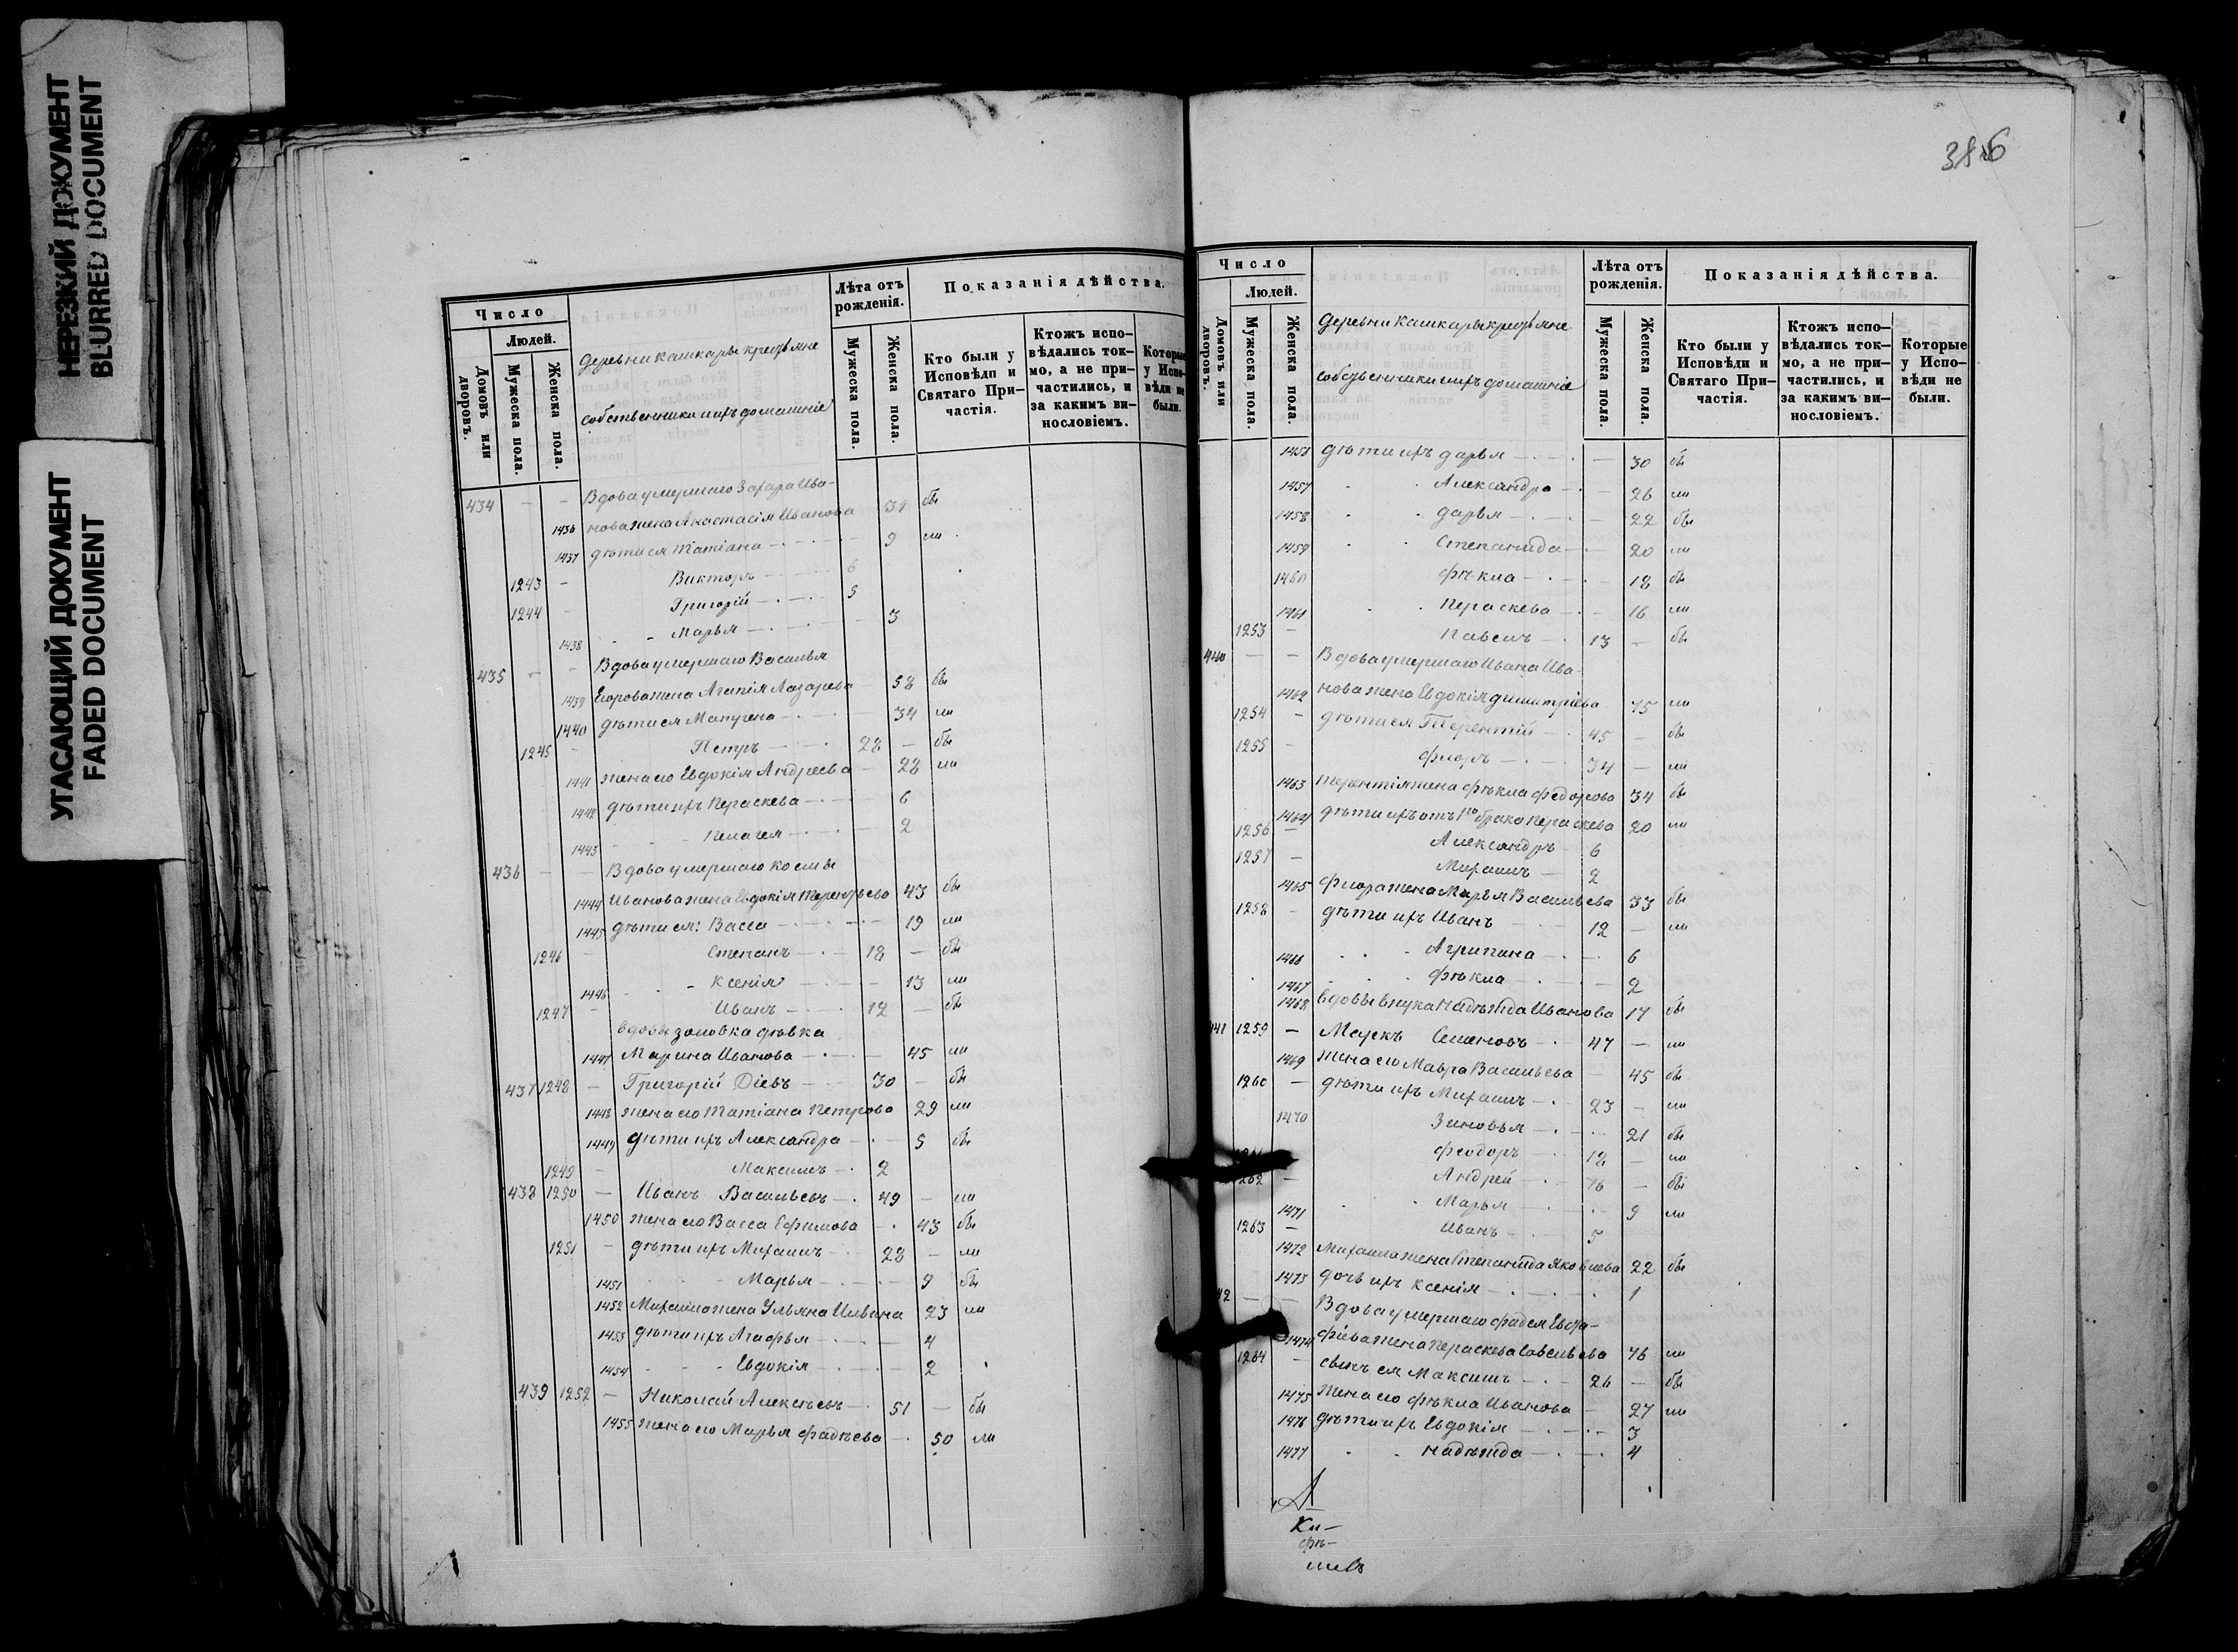 НЕРЕЗКИЙ ДОКУМЕНТ
BLURRED DOCUMENT
УГАСАЮЩИЙ ДОКУМЕНТ
FADED DOCUMENT
Число
Людей.
Домовъ или дворовъ.
Мужеска пола.
Женска пола.
деревни Кашкары
собственники ихъ домашніе
Лѣта отъ рожденія.
Мужеска пола.
Женска пола.
Показанія дѣйства.
Кто были у Исповѣди и Святаго Причастія.
Ктожъ исповѣдались токмо, а не причастились, и за какимъ винословіемъ.
Которые у Исповѣди не были.
434 — — Вдова умершаго Захара Ива-
1436 нова жена Анастасія Иванова 31 бы
1437 дѣти ея Татіана — 9 ли
1243 — Викторъ — 6
1244 — Григорій — 5
1438 Марья — 3
435 — — Вдова умершаго Василья
1439 Егорова жена Агапія Лазарева 58 бы
1440 дѣти ея Матрена — 34 ли
1245 — Петръ — 28 — бы
1441 жена его Евдокія Андреева — 28 ли
1442 дѣти ихъ Пераскева — 6
1443 Пелагея — 2
436 — — Вдова умершаго Козмы
1444 Иванова жена Евдокія Терентьева 43 бы
1445 дѣти ея: Васса — 19 ли
1246 — Степанъ — 18 — бы
1446 Ксенія — 13 ли
1247 — Иванъ — 12 — бы
вдовы золовка дѣвка
1447 Марина Иванова — 45 ли
437 1248 — Григорій Діевъ — 30 — бы
1448 жена его Татіана Петрова 29 ли
1449 дѣти ихъ Александра — 5 бы
1249 — Максимъ — 2
438 1250 — Иванъ Васильевъ — 49 — ли
1450 жена его Васса Ефимова — 43 бы
1251 — дѣти ихъ Михаилъ — 28 — ли
1451 Марья — 9 бы
1452 Михаила жена Ульяна Ильина 23 ли
1453 дѣти ихъ Агафья — 4
1454 Евдокія — 2
439 1252 — Николай Алексѣевъ — 51 — бы
1455 жена его Марья Фадѣева — 50 ли
386
Число
Людей.
Домовъ или дворовъ.
Мужеска пола.
Женска пола.
деревни Кашкары
собственники ихъ домашніе
Лѣта отъ рожденія.
Мужеска пола.
Женска пола.
Показанія дѣйства.
Кто были у Исповѣди и Святаго Причастія.
Ктожъ исповѣдались токмо, а не причастились, и за какимъ винословіемъ.
Которые у Исповѣди не были.
дѣти ихъ Дарья — 30 бы
1457 Александра — 26 ли
1458 Дарья — 22 бы
1459 Степанида — 20 ли
1460 Фекла — 18 бы
1461 Пераскева — 16 ли
1253 — Павелъ — 13 — бы
440 — — Вдова умершаго Ивана Ива-
1462 нова жена Евдокія Димитріева 75 ли
1254 — дѣти ея Терентій — 45 — бы
1255 — Флоръ — 34 — ли
1463 Терентія жена Фекла Федорова 34 бы
1464 дѣти ихъ отъ 1го брака Пераскева 20 ли
1256 — Александръ — 6
1257 — Михаилъ — 2
1465 Флора жена Марья Васильева 33 бы
1258 — дѣти ихъ Иванъ — 12 — ли
1466 Агрипина — 6
1467 Фекла — 2
1468 вдовы внука Надежда Иванова 17 бы
441 1259 — Маркъ Семеновъ — 47 — ли
1469 жена его Мавра Васильева 45 бы
1260 — дѣти ихъ Михаилъ — 23 — ли
1470 Зиновья — 21 бы
Феодоръ — 18 — ли
1262 — Андрей — 16 — бы
1471 Марья — 9 ли
1263 — Иванъ — 5
1472 Михаила жена Степанида Яковлева 22 бы
1473 дочь ихъ Ксенія — 1
442 — — Вдова умершаго Фадея Евста-
1474 фіева жена Пераскева Савельева 76 ли
1264 — сынъ ея Максимъ — 26 — бы
1475 жена его Фекла Иванова — 27 ли
1476 дѣти ихъ Евдокія — 3
1477 Надежда — 4